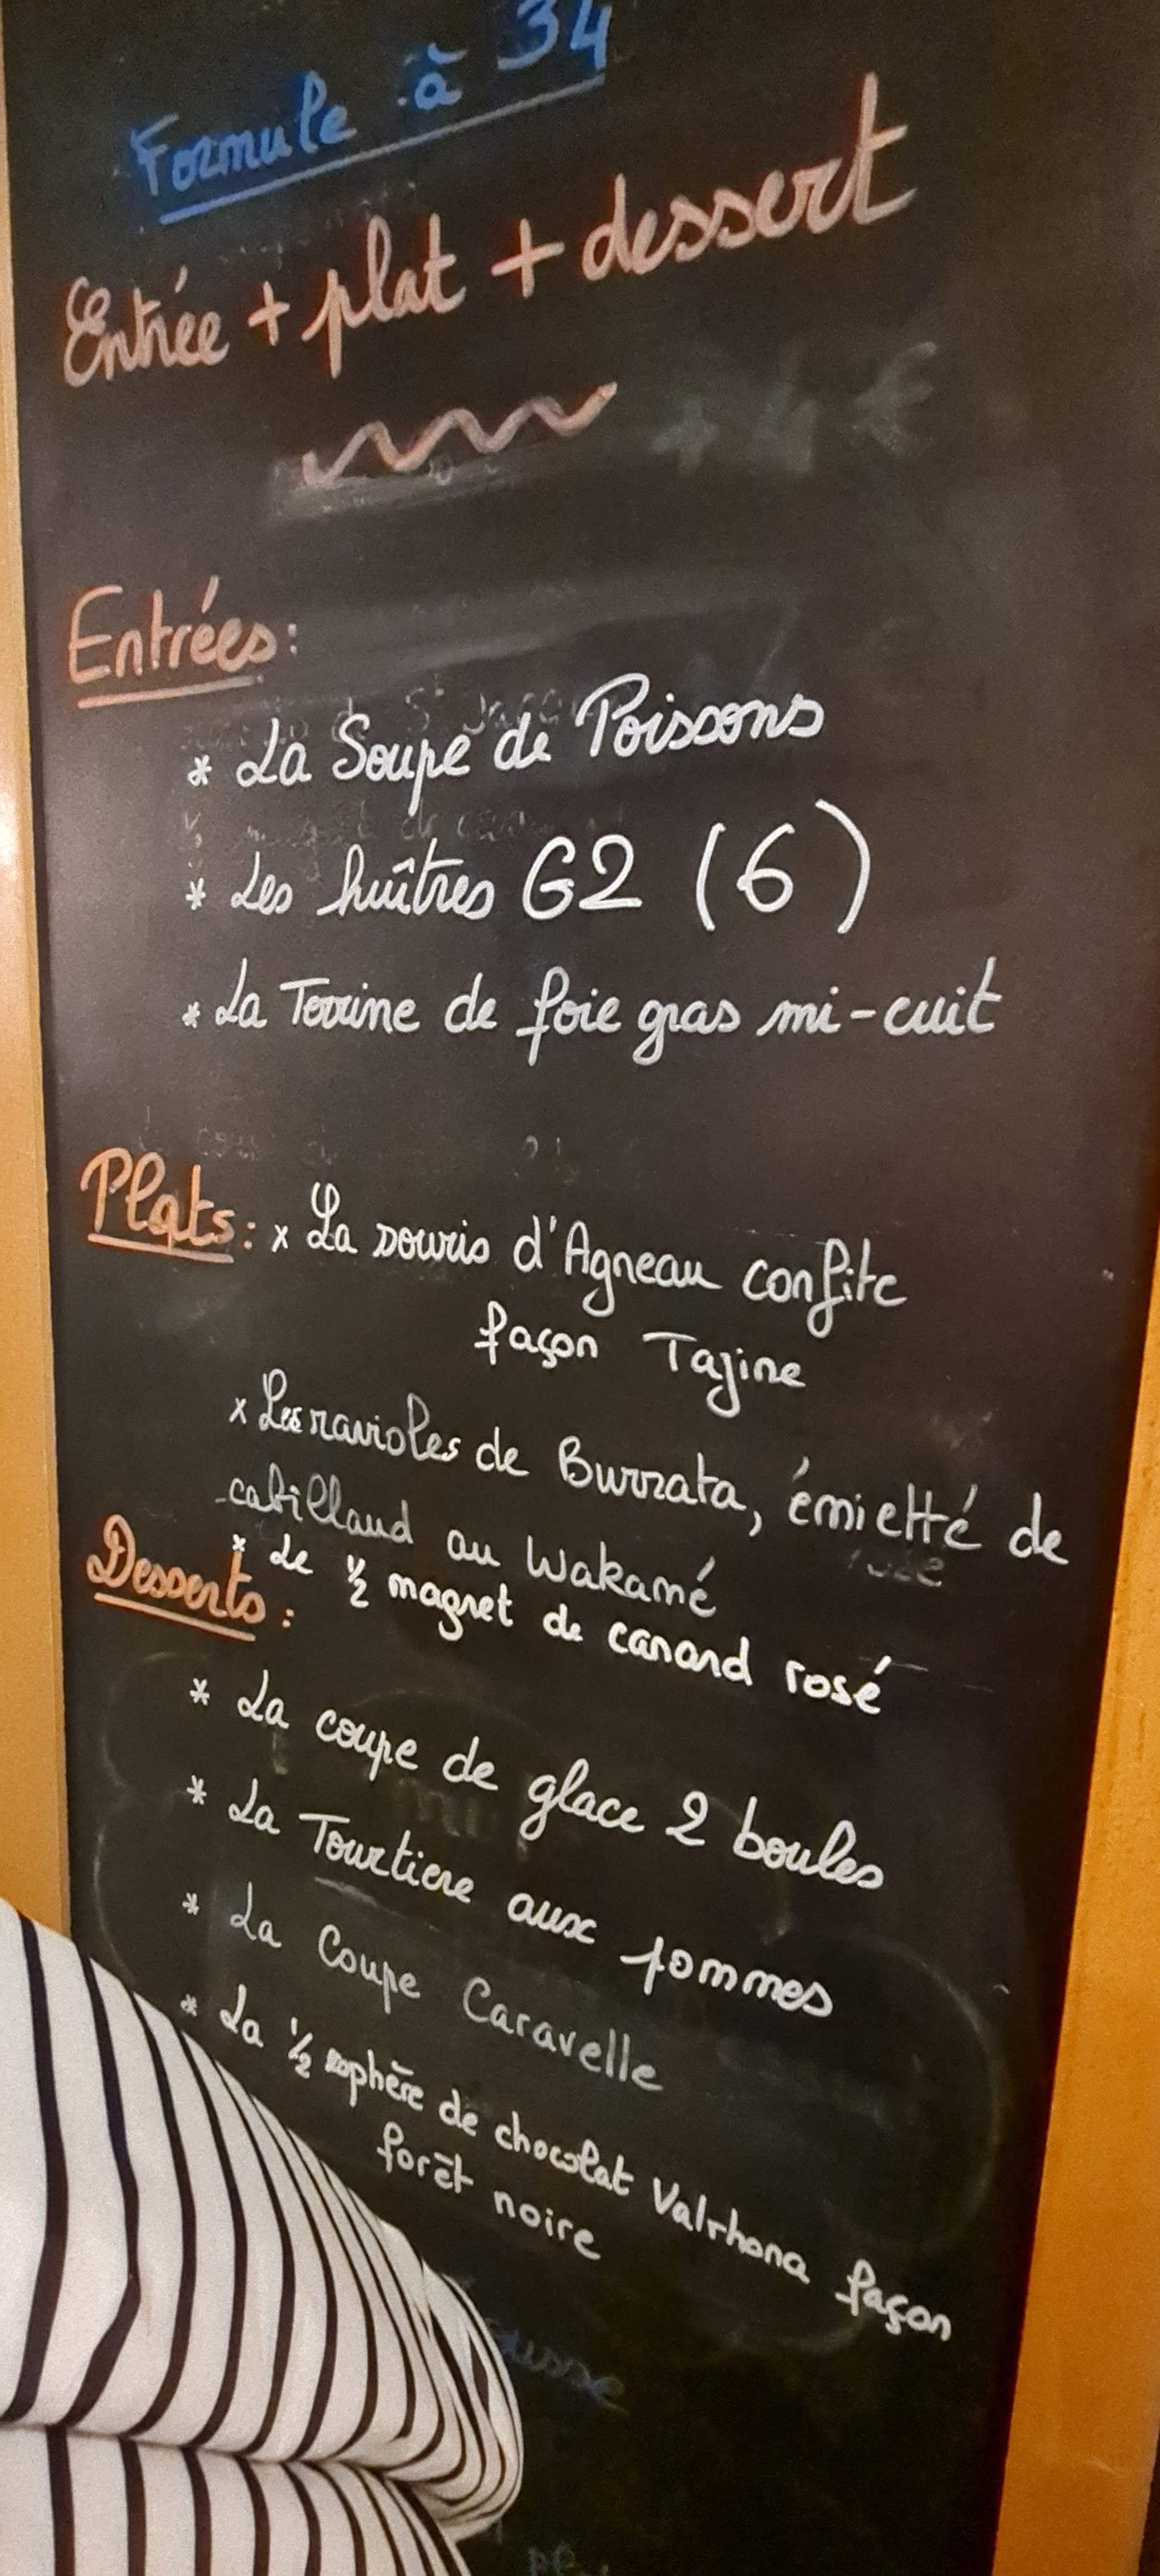 Formule à 34
Entrée + plat + dessert
Entrées:
* La Soupe de Poissons
* Les huîtres G2 (6)
* La Terrine de foie gras mi-cuit
Plats: x La souris d'Agneau confite
façon Tajine
x Les ravioles de Burrata, émietté de
cabillaud au Wakamé
* Le ½ magret de canard rosé
Desserts:
* La coupe de glace 2 boules
* La Tourtiere aux pommes
* La Coupe Caravelle
* La ½ sphère de chocolat Valrhona façon
forêt noire